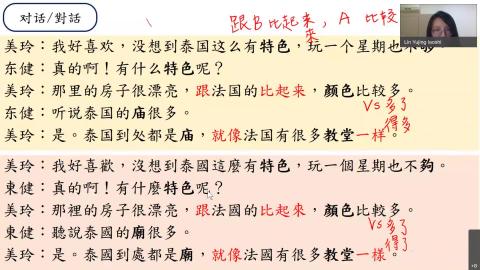 对话/對話
跟B比起来，A 比较
來
Lin Yujing Iacolri
美玲：我好喜欢，没想到泰国这么有特色，玩一个星期也不够。
东健：真的啊！有什么特色呢？
美玲：那里的房子很漂亮，跟法国的比起来，颜色比较多。
vs 多了
东健：听说泰国的庙很多。
得多
美玲：是。泰国到处都是庙，就像法国有很多教堂一样。
美玲：我好喜歡，沒想到泰國這麼有特色，玩一個星期也不夠。
東健：真的啊！有什麼特色呢？
美玲：那裡的房子很漂亮，跟法國的比起來，顏色比較多。
vs 多了
東健：聽說泰國的廟很多。
得了
美玲：是。泰國到處都是廟，就像法國有很多教堂一樣。